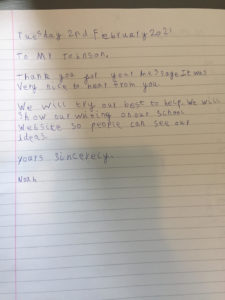 Tuesday 2nd February 2021
To Mr Tomson,
Thank you for your message. It was
very nice to hear from you.
We will try our best to help. We will
show our writing on our school
website so people can see our
ideas.
Yours sincerely,
Noah